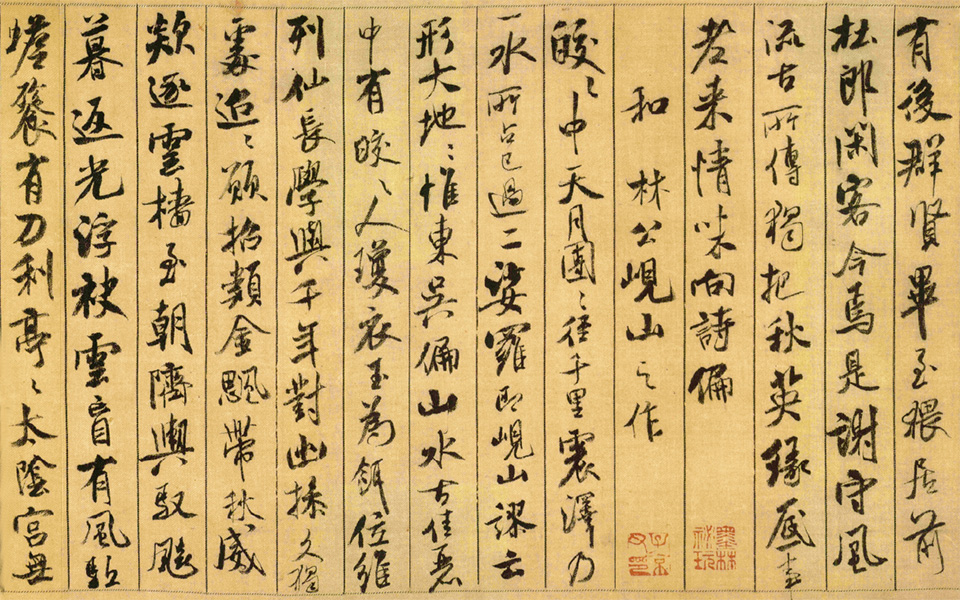 有後群賢畢至猥居前
杜郎閑客今焉是謝守風
流古所傳獨把秋英緣底事
老来情味向詩偏
和林公峴山之作
皎〻中天月團〻徑千里震澤乃
一水所占已過二娑羅即峴山謬云
形大地〻惟東吳偏山水古佳麗
中有皎〻人瓊衣玉為餌位維
列仙長學與千年對幽操久獨
處迢〻願招類金飔帶秋威
欻逐雲檣至朝隮輿馭飈
暮返光浮袂雲盲有風駈
蟾餮有刀利亭〻太陰宮無
墨林祕玩
子京父印